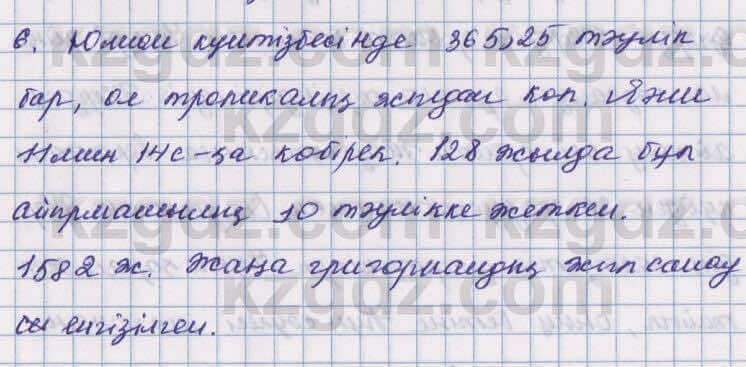 6. Юлиан күнтізбесінде 365,25 тәулік
бар, ол тропикалық жылдан көп. Яғни
11мин 14с-қа көбірек. 128 жылда бұл
айырмашылық 10 тәулікке жеткен.
1582 ж. жаңа григориандық жыл санау
сы енгізілген.
kzgdz.com
kzgdz.com
kzgdz.com